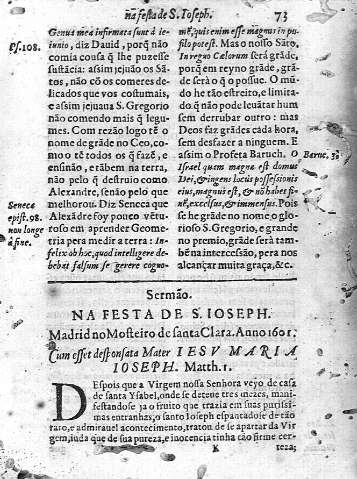 na festa de S. Ioseph.
73
Genua mea infirmata sunt à ie-
iunio, diz Dauid, porq̃ naõ
comia cousa q̃ lhe puzesse
sustãcia: assim jejuão os Sã-
tos, não cõs comeres de-
licados que vos costumais,
e assim jejuaua S. Gregorio
não comendo mais q̃ legu-
mes. Com rezão logo tẽ o
nome de grãde no Ceo, co-
mo o tẽ todos os q̃ fazẽ, e
ensinão, e rãbem na terra,
não pelo q̃ destruio como
Alexandre, senão pelo que
melhorou. Diz Seneca que
Alexãdre foy pouco vẽtu-
roso em aprender Geome-
tria pera medir a terra: In-
felix ob hoc, quod intelligere de-
bebat falsum se gerere cogno-
Ps. 108.
Seneca
epist. 98.
non longe
à fine.
mẽ, quis enim esse magnus in pu-
silo potest. Mas o nosso Sãto,
In regno Cælorum será grãde,
porq̃ em reyno grãde, grã-
de será o q̃ o possue. O mũ-
do he tão estreito, e limita-
do q̃ não pode leuãtar hum
sem derrubar outro: mas
Deos faz grãdes cada hora,
sem desfazer a ninguem. E
assim o Profeta Baruch. O
Israel quam magna est domus
Dei, & ingens locus possessionis
eius, magnus est, & nõ habet fi-
nẽ, excelsus, & immensus. Pois
se he grãde no nome o glo-
rioso S. Gregorio, e grande
no premio, grãde será tam
bẽ na intercessão, pera nos
alcançar muita graça, &c.
Baruc. 3.
Sermão.
NA FESTA DE S. IOSEPH.
Madrid no Mosteiro de santa Clara. Anno 1601.
Cum esset desponsata Mater IESV MARIA
IOSEPH. Matth. 1.
DEspois que a Virgem nossa Senhora veyo de casa
de santa Ysabel, onde se deteue tres mezes, mani-
festandose já o fruito que trazia em suas purissi-
mas entranhas, o santo Ioseph espantado de tão
raro, e admirauel acontecimento, tratou de se apartar da Vir
gem, inda que de sua pureza, e inocencia tinha tão firme cer-
K
teza;